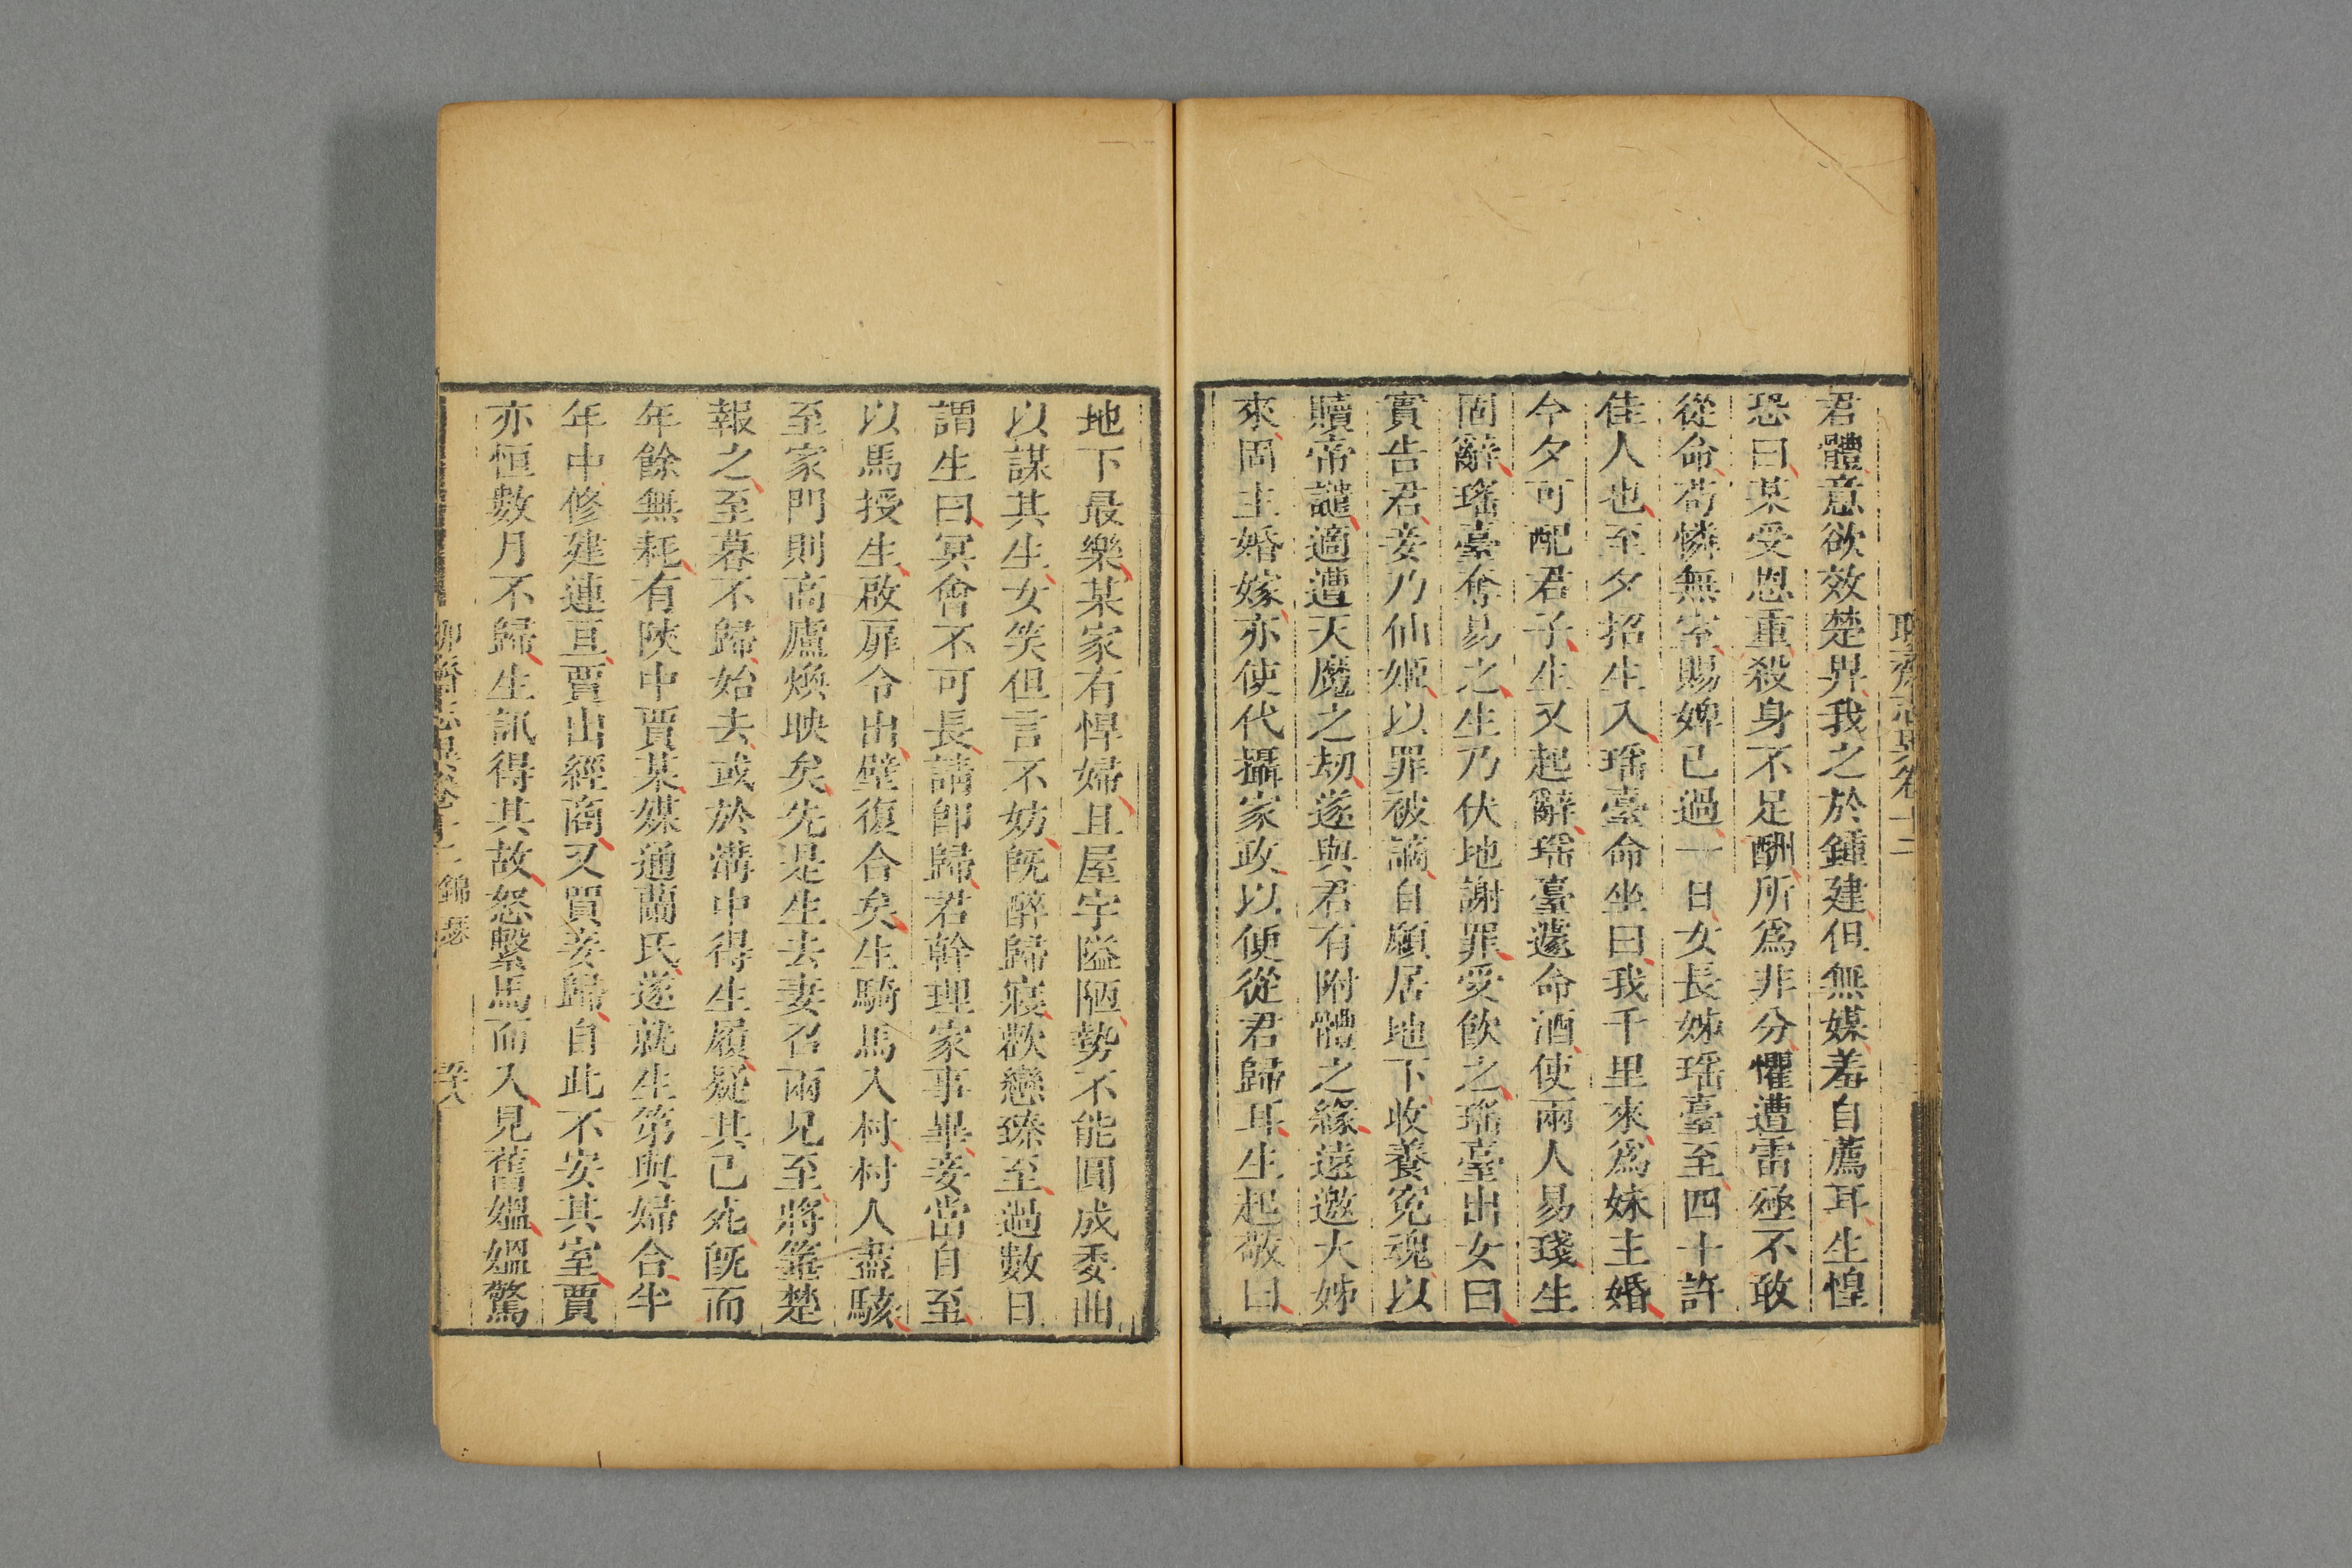 聊齋志異卷十二
君體意欲效楚畀我之於鍾建但無媒羞自薦耳生惶
恐曰某受恩重殺身不足酬所爲非分懼遭雷殛不敢
從命苟憐無室賜婢已過一日女長姊瑶臺至四十許
佳人也至夕招生入瑶臺命坐曰我千里來爲妹主婚
今夕可配君子生又起辭瑶臺遽命酒使兩人易琖生
固辭瑶臺奪易之生乃伏地謝罪受飲之瑶臺出女曰
實告君妾乃仙姬以罪被謫自願居地下收養冤魂以
贖帝譴適遭天魔之劫遂與君有附體之緣遠邀大姊
來固主婚嫁亦使代攝家政以便從君歸耳生起敬曰
地下最樂某家有悍婦且屋宇隘陋勢不能圓成委曲
以謀其生女笑但言不妨旣醉歸寢歡戀臻至過數日
謂生曰冥會不可長請卽歸君幹理家事畢妾當自至
以馬授生啟扉令出壁復合矣生騎馬入村村人盡駭
至家門則高廬煥映矣先是生去妻召兩兄至將箠楚
報之至暮不歸始去或於溝中得生履疑其已死旣而
年餘無耗有陝中賈某媒通蘭氏遂就生第與婦合半
年中修建連亘賈出經商又買妾歸自此不安其室賈
亦恒數月不歸生訊得其故怒繫馬而入見舊媼媼驚
聊齋志異卷十二 錦瑟